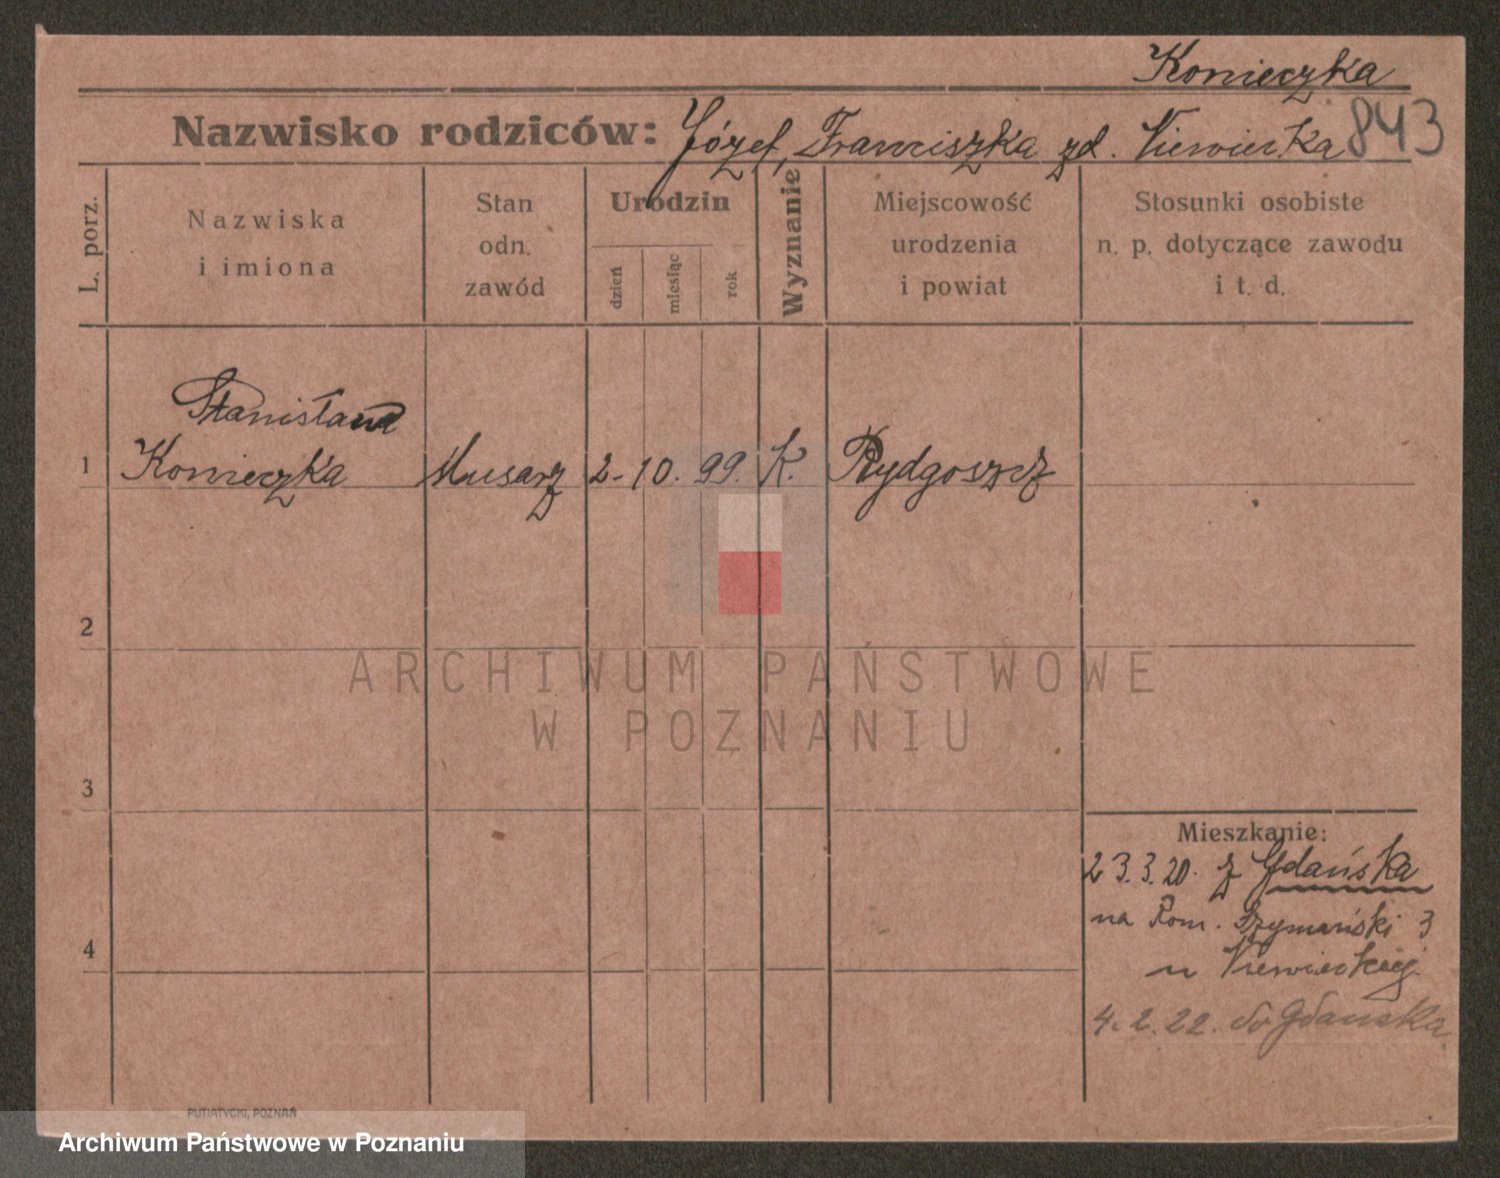 Konieczka
Nazwisko rodziców: Józef, Franciszka zd. 843
L. porz.
Nazwiska
i imiona
Stan
odn.
zawód
Urodzin
dzień
miesiąc
rok
Wyznanie
Miejscowość
urodzenia
i powiat
Stosunki osobiste
n. p. dotyczące zawodu
i t. d.
Stanisław
1 Konieczka 2. 10. 99. K. Bydgoszcz
2
ARCHIWUM PAŃSTWOWE
W POZNANIU
3
Mieszkanie:
23.3.20. z Gdańska
na Szymański 3
4
u
4. 2. 22. do Gdańska
PUTIATYCKI, POZNAŃ
Archiwum Państwowe w Poznaniu